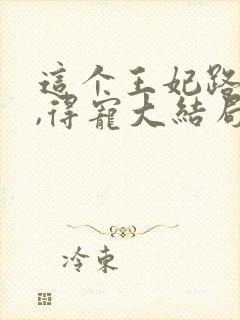 這个王妃路
,得寵大結局
冷東